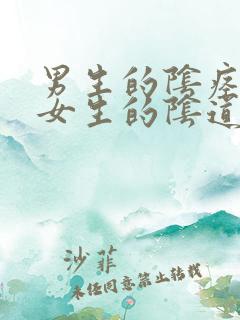 男生的陰痉
女生的陰道
沙菲
未经同意禁止转载